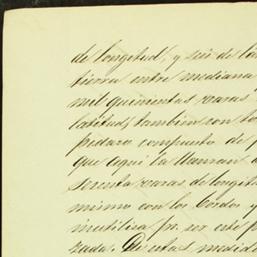 de longitud, y seis de la
tierra entre mediana
mil quinientas varas
latitud, tambien con lo
pedazo compuesto de p
que aqui la llaman a
sesenta varas de longit
mismo con los bordos y
inutiliza pr. ser este p
zada. De estas medida